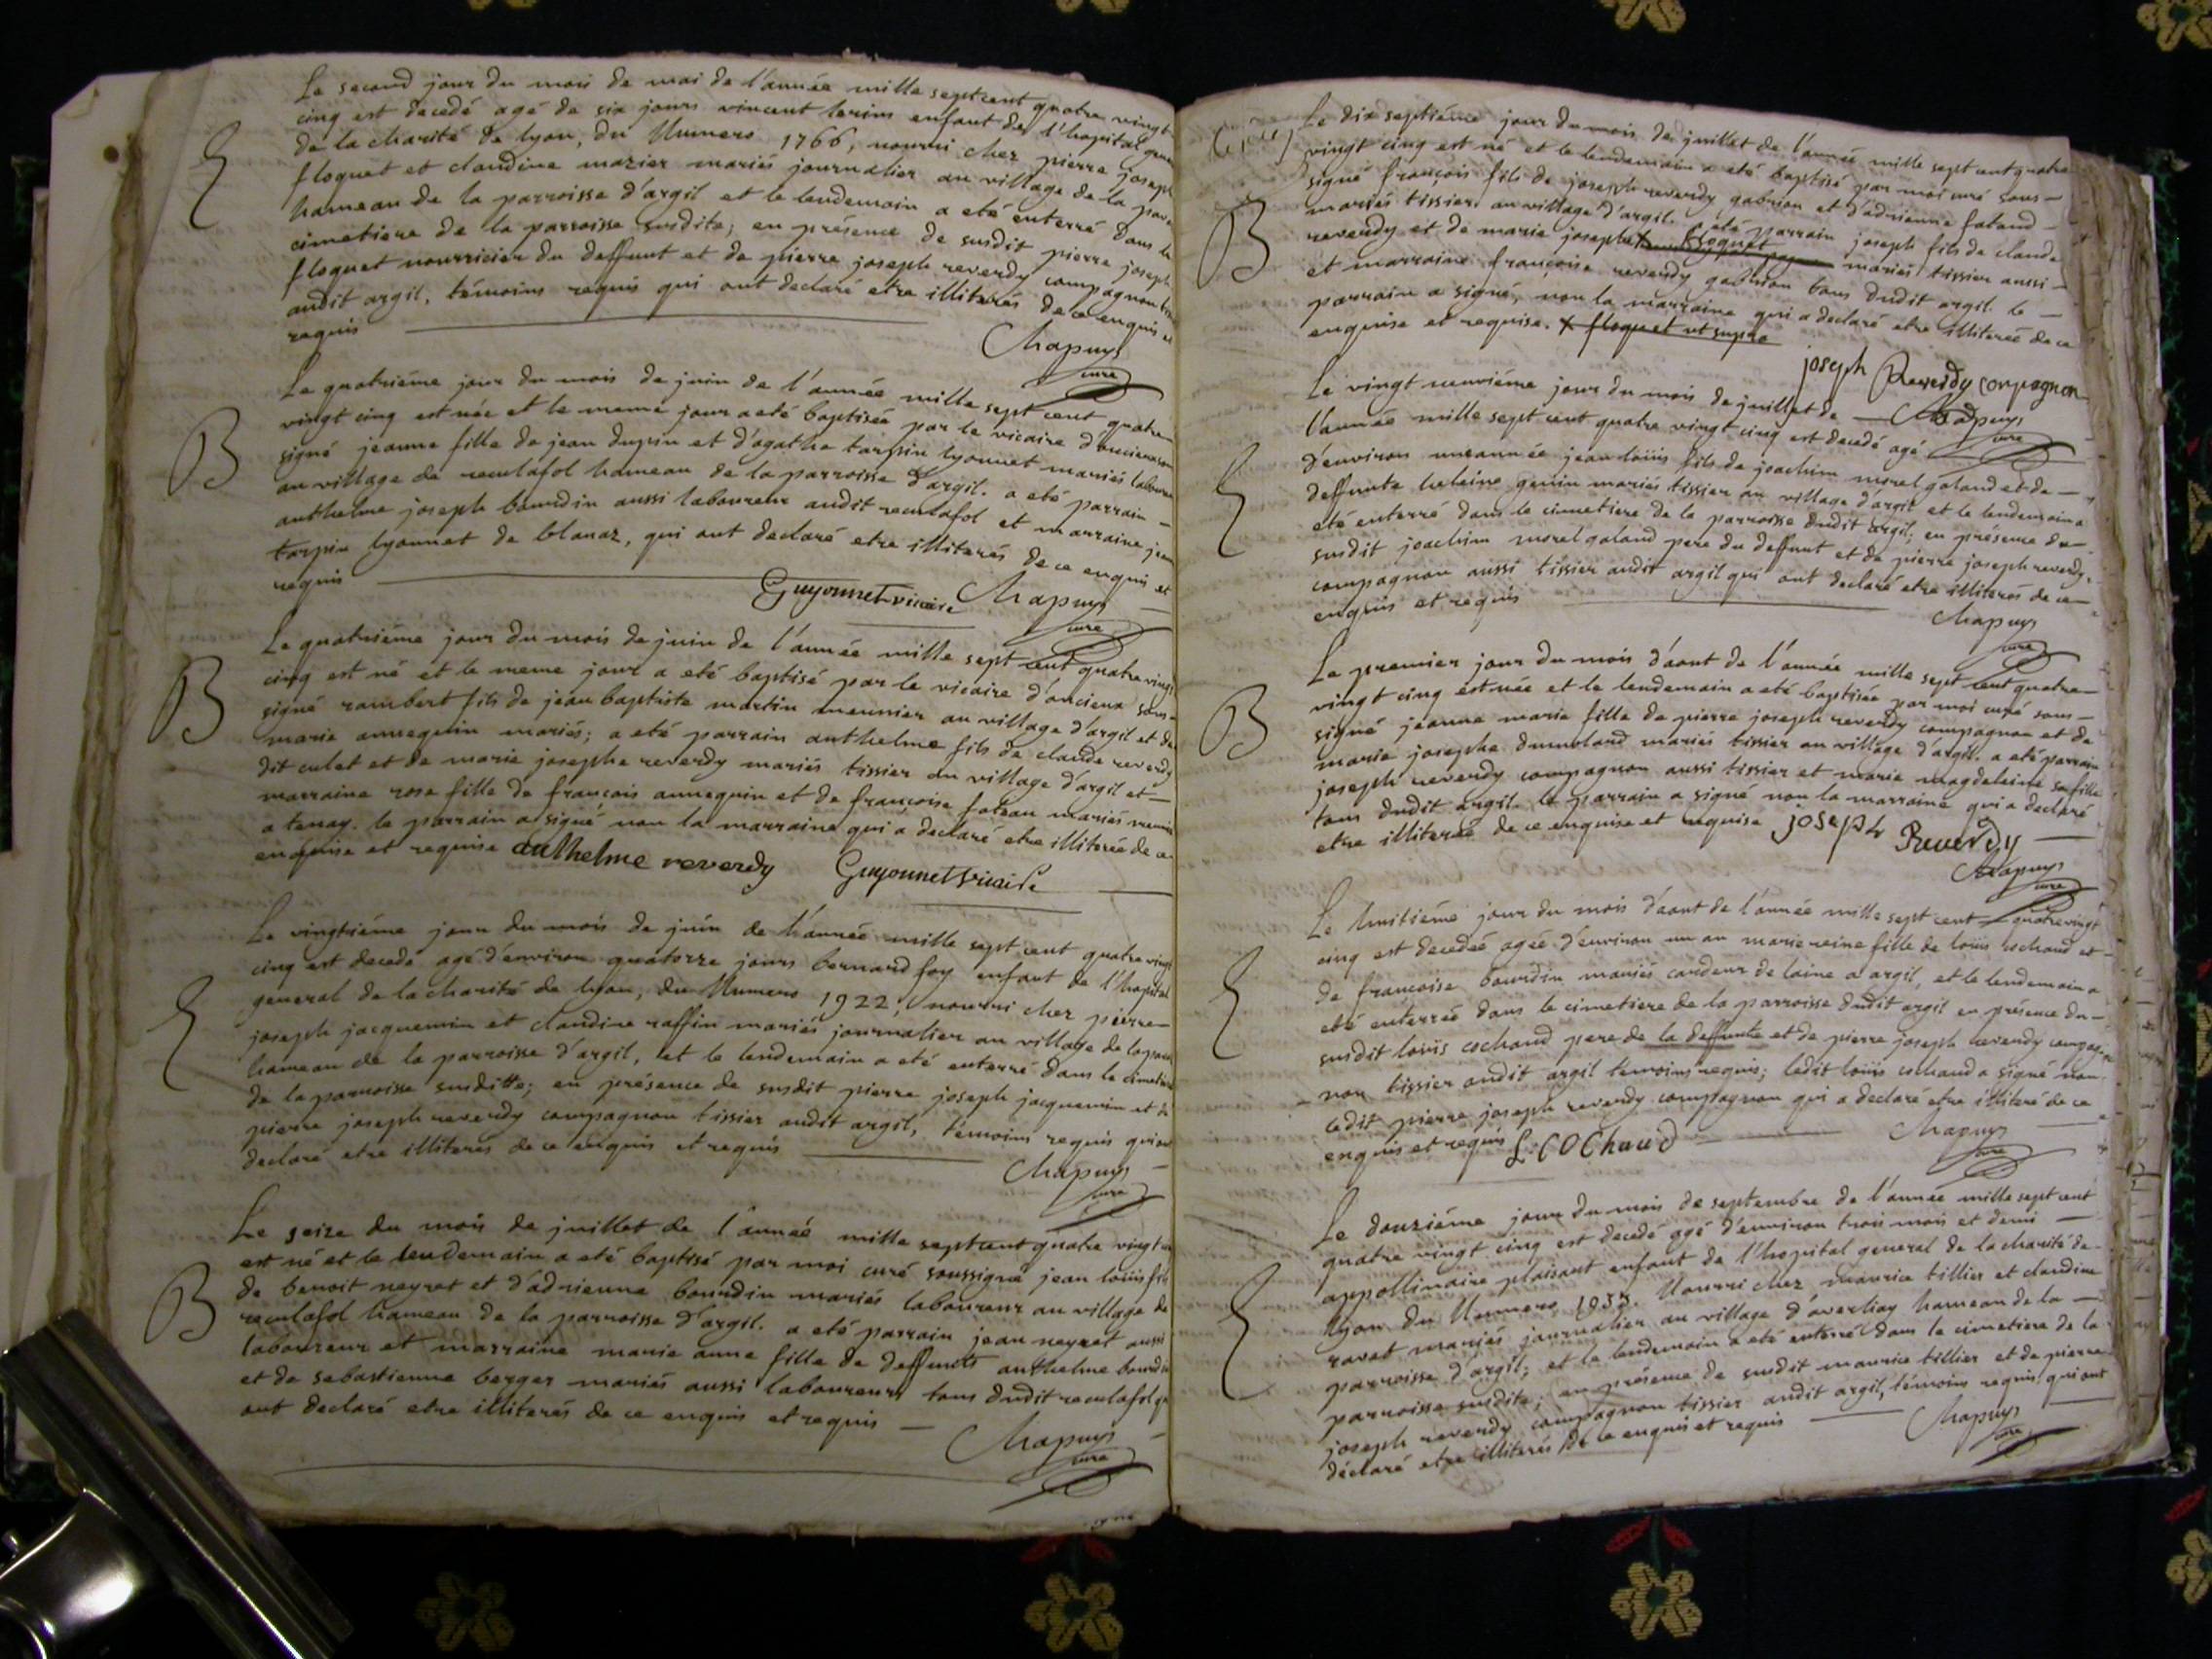 Le second jour du mois de mai de l'année mille septcent quatre vingt
cinq est decedé agé de six jours vincent lerins enfant de l'hopital gene
de la charité de lyon, du Numero 1766, nourri chez pierre joseph
floquet et claudine mazier mariés journalier au village de la
hameau de la parroisse d'argil et le lendemain a eté enterré dans le
cimetiere de la parroisse susdite; en présence de susdit pierre joseph
floquet nourricier du deffunt et de pierre joseph reverdy compagnon
audit argil, témoins requis qui ont declaré etre illiterés de ce enquis et
requis
Chapuys
curé
B
Le quatriéme jour du mois de juin de l'année mille sept cent quatre
vingt cinq est née et le meme jour a eté baptisée par le vicaire d'oncieux
signé jeanne fille de jean dupin et d'agathe tarpin lyonnet mariés
au village de reculafol hameau de la parroisse d'argil. a eté parrain
anthelme joseph bourdin aussi laboureur audit reculafol et marraine
tarpin lyonnet de blanaz, qui ont declaré etre illiterés de ce enquis et
requis
Guyonnet vicaire Chapuys
curé
B
Le quatriéme jour du mois de juin de l'année mille sept cent quatre vingt
cinq est né et le meme jour a eté baptisé par le vicaire d'oncieux sous
signé rambert fils de jean baptiste martin meunier au village d'argil et de
marie annequin mariés; a eté parrain anthelme fils de claude reverdy
dit culet et de marie josephe reverdy mariés tissier au village d'argil et
marraine rose fille de françois annequin et de françoise mariés
a tenay. le parrain a signé non la marraine qui a declaré etre illiterée de ce
enquise et requise anthelme reverdy Guyonnet vicaire
Le vingtiéme jour du mois de juin de l'année mille sept cent quatre vingt
cinq est decedé agé d'environ quatorze jours bernard foy enfant de l'hopital
general de la charité de lyon, du Numero 1922, nourri chez pierre
joseph jacquemin et claudine raffin mariés journalier au village de
hameau de la parroisse d'argil, et le lendemain a eté enterré dans le cimetiere
de la parroisse susditte; en présence de susdit pierre joseph jacquemin et de
pierre joseph reverdy compagnon tissier audit argil, témoins requis qui ont
declaré etre illiterés de ce enquis et requis
Chapuys
curé
B
Le seize du mois de juillet de l'année mille septcent quatre vingt
est né et le lendemain a eté baptisé par moi curé soussigné jean loüis fils
de benoit neyret et d'adrienne bourdin mariés laboureur au village de
reculafol hameau de la parroisse d'argil. a eté parrain jean neyret aussi
laboureur et marraine marie anne fille de deffunts anthelme bourdin
et de sebastienne berger mariés aussi laboureurs tous dudit reculafol
ont declaré etre illiterés de ce enquis et requis
Chapuys
curé
Le dix septiéme jour du mois de juillet de l'année mille sept cent quatre
vingt cinq est né et le lendemain a eté baptisé par moi curé sous
B
signé françois fils de joseph reverdy gabrion et d'adrienne
mariés tissier au village d'argil. a eté parrain joseph fils de claude
reverdy et de marie josephe mariés tissier aussi
et marraine françoise reverdy gabrion tous dudit argil. le
parrain a signé, non la marraine qui a declaré etre illiterée de ce
enquise et requise. x floquet ut supra
joseph Reverdy compagnon
Chapuys
curé
Le vingt neuviéme jour du mois de juillet de
l'année mille sept cent quatre vingt cinq est decedé agé
d'environ une année jean loüis fils de joachim morel galand et de
deffunte heleine genin mariés tissier au village d'argil et le lendemain a
eté enterré dans le cimetiere de la parroisse dudit argil; en présence du
susdit joachim morel galand pere du deffunt et de pierre joseph reverdy
compagnon aussi tissier audit argil qui ont declaré etre illiterés de ce
enquis et requis
Chapuys
curé
B
Le premier jour du mois d'aout de l'année mille sept cent quatre
vingt cinq est née et le lendemain a eté baptisée par moi curé sous
signé jeanne marie fille de pierre joseph reverdy compagnon et de
marie josephe dumolard mariés tissier au village d'argil. a eté parrain
joseph reverdy compagnon aussi tissier et marie magdeleine sa fille
tous dudit argil. le parrain a signé non la marraine qui a declaré
etre illiterée de ce enquise et requise joseph Reverdy
Chapuys
curé
Le huitiéme jour du mois d'aout de l'année mille sept cent quatre vingt
cinq est decedeé agée d'environ un an marie reine fille de loüis cochaud et
de francoise bourdin mariés cardeur de laine a argil, et le lendemain a
eté enterrée dans le cimetiere de la parroisse dudit argil en présence du
susdit loüis cochaud pere de la deffunte et de pierre joseph reverdy compag
non tissier audit argil temoins requis; ledit loüis cochaud a signé non
ledit pierre joseph reverdy compagnon qui a declaré etre illiteré de ce
enquis et requis L. COChaud
Chapuys
curé
Le douziéme jour du mois de septembre de l'année mille sept cent
quatre vingt cinq est decedé agé d'environ trois mois et demi
appollinaire plaisant enfant de l'hopital general de la charité de
lyon du Numero 1935. Nourri chez maurice tillier et claudine
ravet mariés journalier au village d'averliaz hameau de la
parroisse d'argil; et le lendemain a eté enterré dans le cimetiere de la
parroisse susdite; en présence de susdit maurice tillier et de pierre
joseph reverdy compagnon tissier audit argil, témoins requis qui ont
déclaré etre illiterés de ce enquis et requis
Chapuys
curé